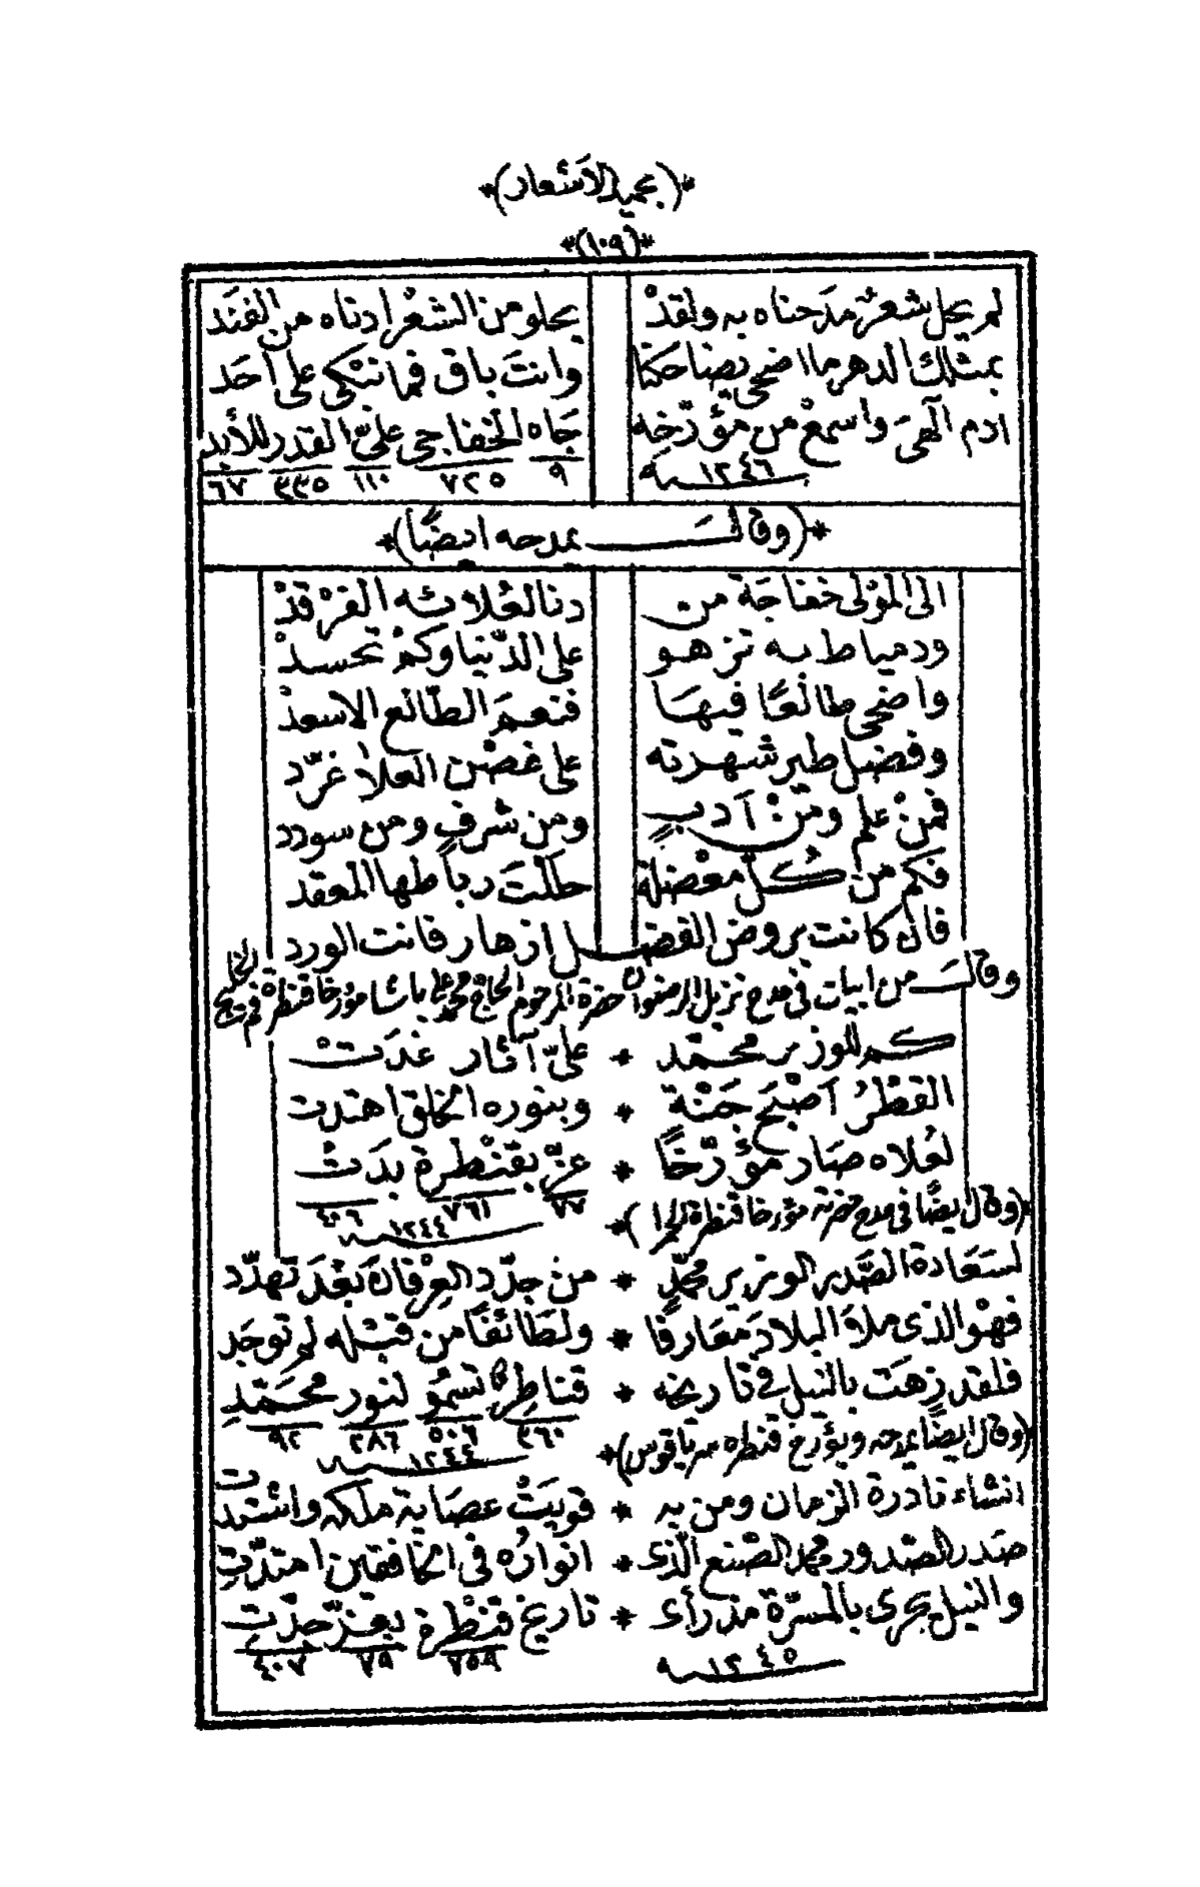 *(بحميد الاشعار)*
*(١٠٩)*
لم يحل شعرٌ مدحناه به ولقدْ يحلو من الشعْر ادناه من الفنَد
بمثلك الدهر ما اضحى يضاحكنا وانتَ باق فما نبكى على أحَد
ادم الهىَ واسمعْ من مؤرّخه جَاه الخفاجى علىّ القدر للأبد
١٢٤٦ سنه ٩ ٧٢٥ ١١٠ ٣٣٥ ٦٧
*(وقالَ يمدحه ايضًا)*
الى المَوْلى خفاجَة من دنا لعُلائه الفرْقدْ
ودمياط به تزهو على الدّنيا وكمْ تحسدْ
واضحى طالعًا فيهَا فنعمَ الطّالع الاسعدْ
وفضل طير شهرته على غصْن العلا غرّد
فمنْ علم ومنْ آدبٍ ومن شرفٍ ومن سودد
فكم من كُلّ معضلة حللْتَ رباطها المعقد
فان كانت بروض الفضل ازهار فانت الورد
وقالَ من ابيات فى مدح نزيل الرضوان حضرة المرحوم الحاج محمد على باشا مؤرخا قنطرة فم ترعة الخليج
كم للوزير محمّد * علىّ آثار غدَتْ
القطْرُ آصْبَحَ جَنْة * وبنوره الخلق اهتدت
لعُلاه صَار مؤرّخًا * عزّ بقنْطرة بدَتْ
٧٧ ٧٦١ ٤٠٦
١٢٤٤ سنه
(وقال ايضًا فى مدح حضرته مؤرخا قنطرة البحر)*
لسَعَادة الصَّدر الوزير محمّدٍ * من جدّد العِرْفانَ بَعْدَ تهدّد
فهْو الذى ملأ البلادَ معَارفًا * ولطَائفًا من قبْله لم توجَد
فلقد زهَت بالنيل فى تاريخه * قناطرٌ تسْمو لنور محمّدِ
٣٦٠ ٥٠٦ ٢٨٦ ٩٢
١٢٤٤ سنه
(وقال ايضًا يمدحه ويؤرخ قنطره سرياقوس)*
انشاء نادرة الزمان ومن به * قويَتْ عصَابة ملكه واشتدّت
صَدر الصّدور محمد الصّنع الّذى * انوارُه فى الخافقين امتدّتِ
والنيل يجرى بالمسرّة مذ رأى * تاريخ قنْطرة بعزّ جدّت
١٢٤٥ سنه ٧٥٩ ٧٩ ٤٠٧